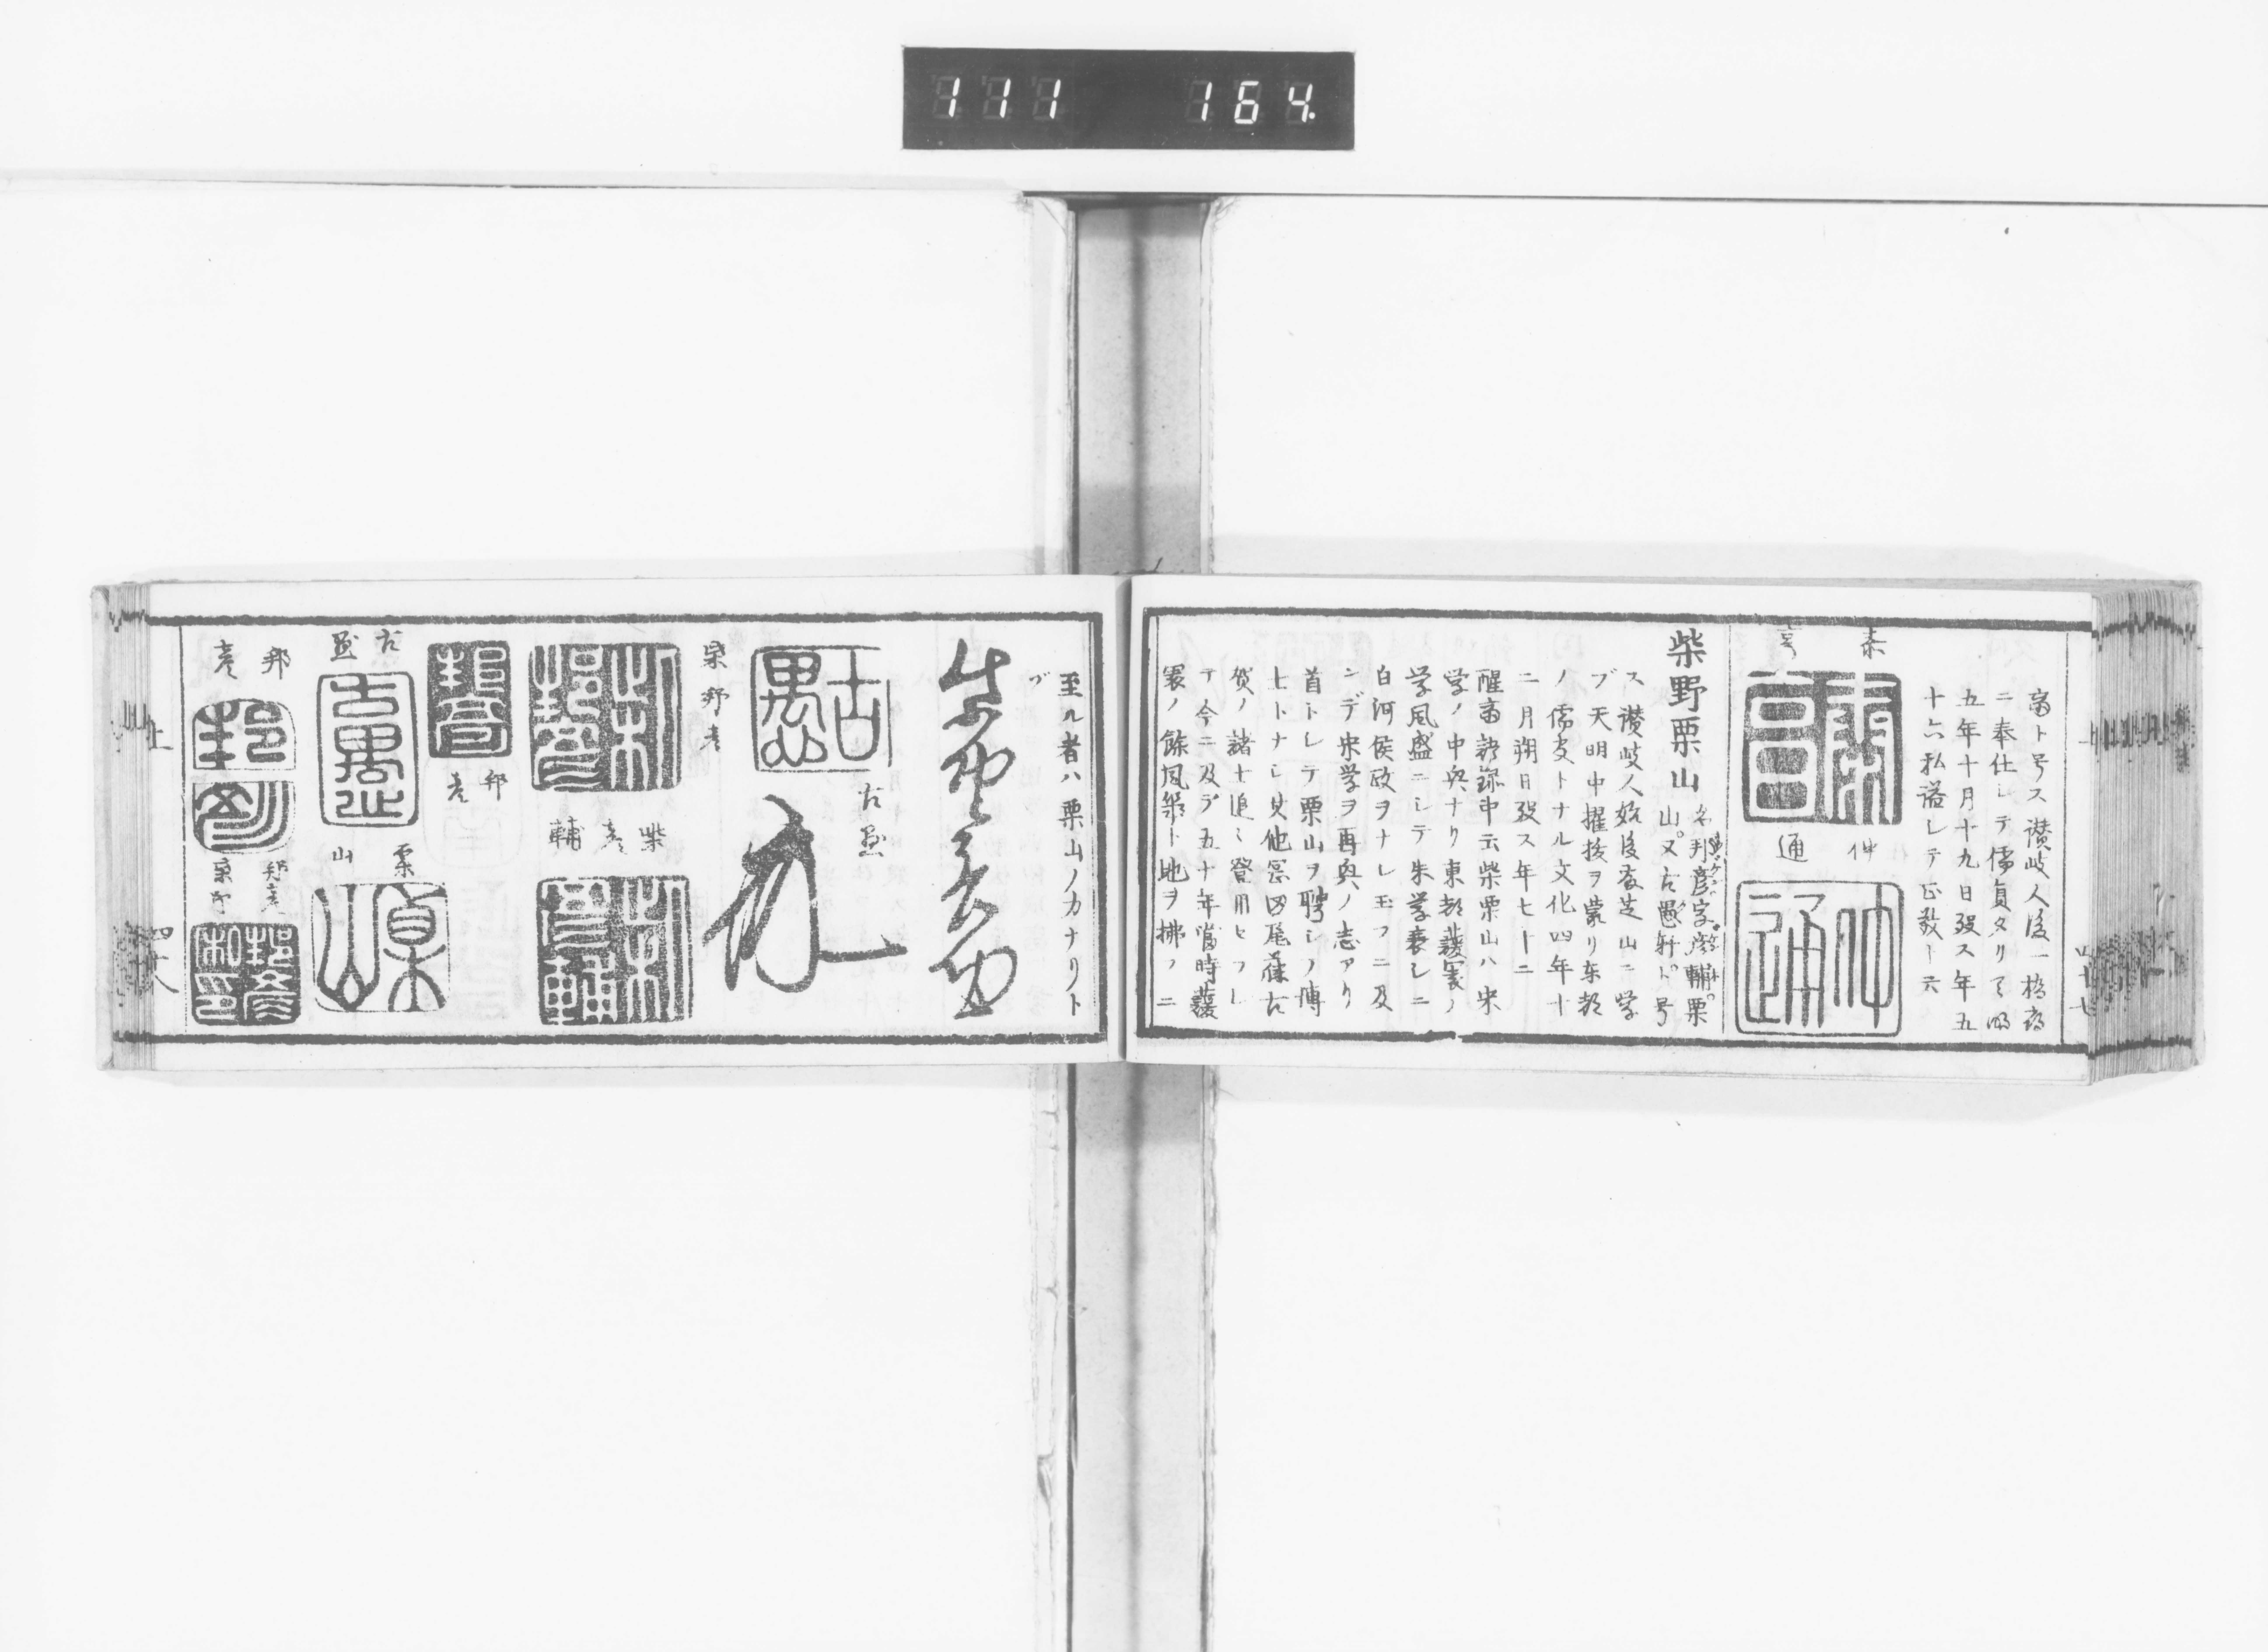 111 164
斎ト号ス讃岐人後一橋府
ニ奉仕シテ儒員タリ天明
五年十月十九日歿ス年五
十六私諡シテ正毅ト云
泰亨
仲通
柴野栗山
名邦彦字彦輔栗
山又古愚軒ト号
ス讃岐人始後斎芝山ニ学
ブ天明中擢抜ヲ蒙リ东都
ノ儒吏トナル文化四年十
二月朔日歿ス年七十二
醒斎 云柴栗山ハ宋
学ノ中興ナリ東都蘐園ノ
学風盛ニシテ朱学衰シニ
白河侯政ヲナシ玉フニ及
ンデ宋学ヲ再興ノ志アリ
首トシテ栗山ヲ聘シノ博
士トナシ其他岡田尾藤古
賀ノ諸士追々登用セラレ
テ今ニ及ブ五十年當時蘐
園ノ餘風 ト地ヲ拂フニ
至ル者ハ栗山ノ力ナリト
ゾ
古愚
柴邦彦
柴彦輔
邦彦
古愚
栗山
邦彦
邦彦
上
四十七
四十八